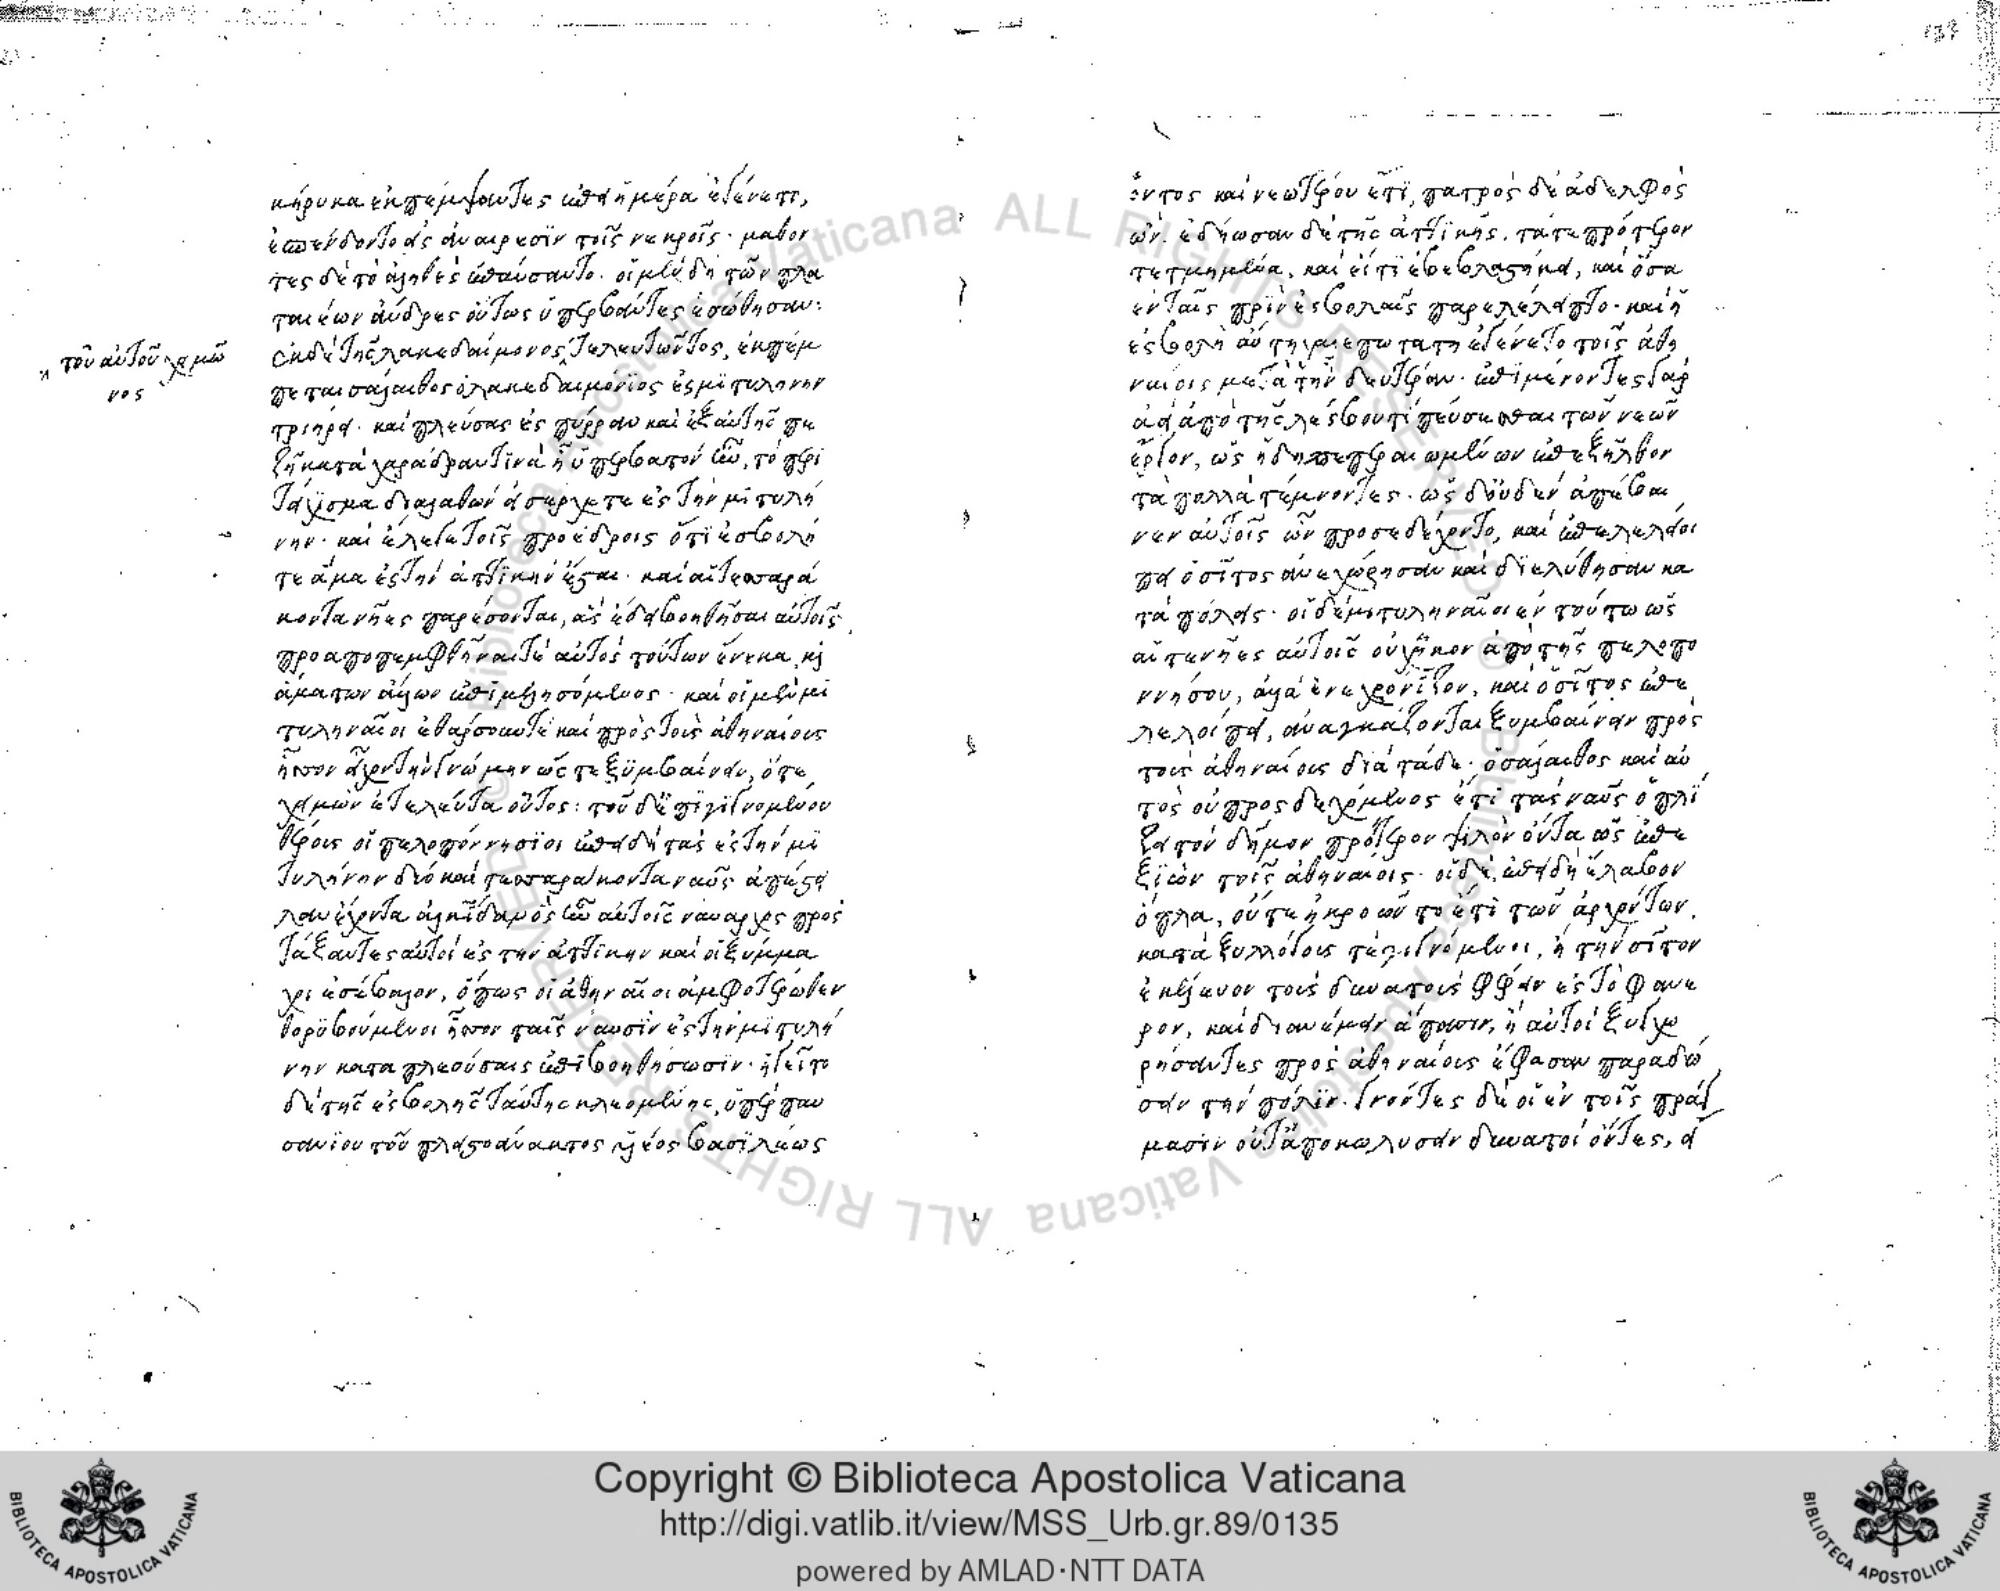 κήρυκα ἐκπέμψαντες ἐπεὶ ἡμέρα ἐγένετο,
ἐσπένδοντο εἰς ἀναίρεσιν τοῖς νεκροῖς· μαθόν
τες δὲ τὸ ἀληθὲς ἐπαύσαντο. οἱ μὲν δὴ τῶν πλα
ταιέων ἄνδρες οὕτως ὑπερβάντες ἐσώθησαν:
ἐκ δὲ τῆς λακεδαίμονος τελευτῶντος, ἐκπέμ
πεται σάλαιθος ὁ λακεδαιμόνιος ἐς μιτυλήνην
τριήρει· καὶ πλεύσας ἐς πύρραν καὶ ἐξ αὐτῆς πε
ζῇ κατὰ χαράδραν τινὰ ᾗ ὑπερβατὸν ἦν, τὸ περι
τείχισμα διαλαθὼν ἐσέρχεται ἐς τὴν μιτυλή
νην· καὶ ἔλεγε τοῖς προέδροις ὅτι ἐσβολή
τε ἅμα ἐς τὴν ἀττικὴν ἔσται· καὶ αἱ τεσσαρά
κοντα νῆες παρέσονται, ἃς ἔδει βοηθῆσαι αὐτοῖς
προαποπεμφθῆναί τε αὐτὸς τούτων ἕνεκα κὶ
ἅμα τῶν ἄλλων ἐπιμελησόμενος· καὶ οἱ μὲν μι
τυληναῖοι ἐθάρσουν τε καὶ πρὸς τοὺς ἀθηναίους
ἧσσον εἶχον τὴν γνώμην ὥστε ξυμβαίνειν, ὅ τε
χειμὼν ἐτελεύτα οὗτος: τοῦ δ' ἐπιγιγνομένου
θέρους οἱ πελοπόννησιοι ἐπειδὴ τὰς ἐς τὴν μι
τυλήνην δύο καὶ τεσσαράκοντα ναῦς ἀπέστει
λαν ἔχοντα ἀλκίδαν ὃς ἦν αὐτοῖς ναύαρχος προσ
τάξαντες αὐτοὶ ἐς τὴν ἀττικὴν καὶ οἱ ξύμμα
χοι ἐσέβαλον, ὅπως οἱ ἀθηναῖοι ἀμφοτέρωθεν
θορυβούμενοι ἧσσον ταῖς ναυσὶν ἐς τὴν μιτυλή
νην καταπλεούσαις ἐπιβοηθήσωσιν· ἡγεῖτο
δὲ τῆς ἐσβολῆς ταύτης κλεομένης, ὑπὲρ παυ
σανίου τοῦ πλειστοάνακτος υἱέος βασιλέως
τοῦ αὐτοῦ χειμῶ
νος
137
ὄντος καὶ νεωτέρου ἔτι, πατρὸς δὲ ἀδελφὸς
ὤν. ἐδῄωσαν δὲ τῆς ἀττικῆς. τά τε πρότερον
τετμημένα, καὶ εἴ τι ἐβεβλαστήκει, καὶ ὅσα
ἐν ταῖς πρὶν ἐσβολαῖς παρελέλειπτο· καὶ ἡ
ἐσβολὴ αὕτη χαλεπωτάτη ἐγένετο τοῖς ἀθη
ναίοις μετὰ τὴν δευτέραν· ἐπιμένοντες γὰρ
ἀεὶ ἀπὸ τῆς λέσβου τι πεύσεσθαι τῶν νεῶν
ἔργον, ὡς ἤδη πεπεραιωμένων ἐπεξῆλθον
τὰ πολλὰ τέμνοντες· ὡς δ' οὐδὲν ἀπέβαι
νεν αὐτοῖς ὧν προσεδέχοντο, καὶ ἐπελελοί
πει ὁ σῖτος ἀνεχώρησαν καὶ διελύθησαν κα
τὰ πόλεις· οἱ δὲ μιτυληναῖοι ἐν τούτῳ ὡς
αἵ τε νῆες αὐτοῖς οὐχ ἧκον ἀπὸ τῆς πελοπο
ννήσου, ἀλλὰ ἐνεχρόνιζον, καὶ ὁ σῖτος ἐπε
λελοίπει, ἀναγκάζονται ξυμβαίνειν πρὸς
τοὺς ἀθηναίους διὰ τάδε· ὁ σάλαιθος καὶ αὐ
τὸς οὐ προσδεχόμενος ἔτι τὰς ναῦς ὁπλί
ζει τὸν δῆμον πρότερον ψιλὸν ὄντα ὡς ἐπε
ξιὼν τοῖς ἀθηναίοις· οἱ δὲ, ἐπειδὴ ἔλαβον
ὅπλα, οὔτε ἠκροῶντο ἔτι τῶν ἀρχόντων,
κατὰ ξυλλόγους τε γιγνόμενοι, ἢ τὴν σῖτον
ἐκέλευον τοὺς δυνατοὺς φέρειν ἐς τὸ φανε
ρὸν, καὶ διανέμειν ἅπασιν, ἢ αὐτοὶ ξυγχω
ρήσαντες πρὸς ἀθηναίους ἔφασαν παραδώ
σειν τὴν πόλιν. γνόντες δὲ οἱ ἐν τοῖς πράγ
μασιν οὔτ' ἀποκωλύσειν δυνατοὶ ὄντες, εἴ
Copyright © Biblioteca Apostolica Vaticana
http://digi.vatlib.it/view/MSS_Urb.gr.89/0135
powered by AMLAD·NTT DATA
BIBLIOTECA APOSTOLICA VATICANA
BIBLIOTECA APOSTOLICA VATICANA